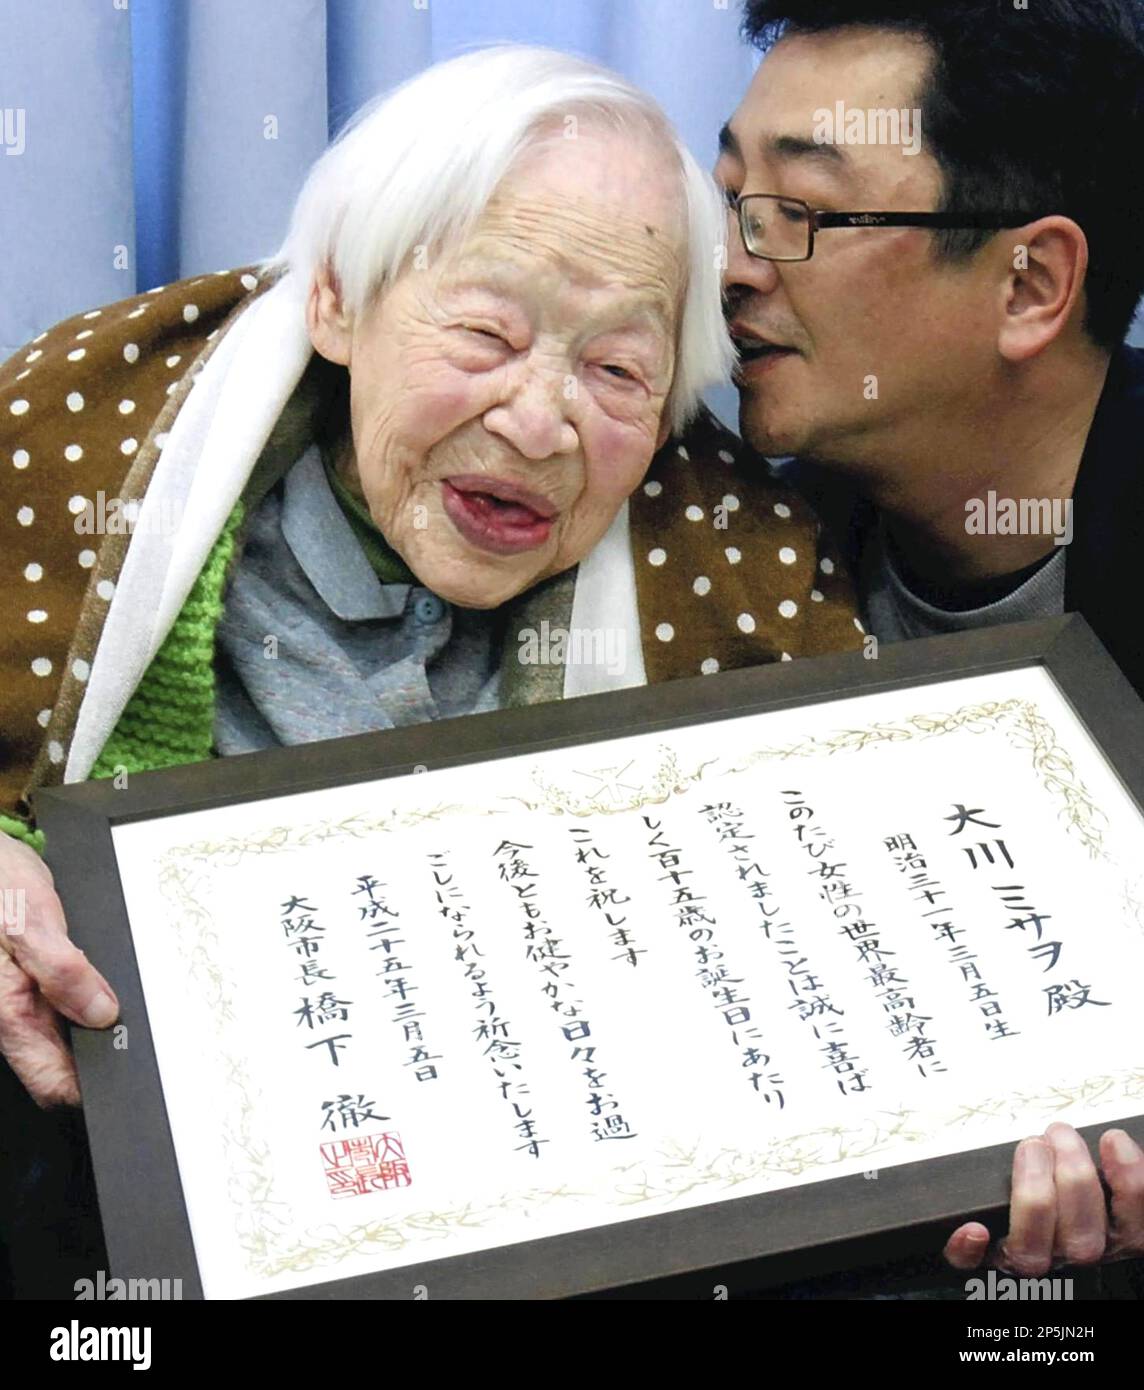 大川ミサヲ殿
明治三十一年三月五日生
このたび女性の世界最高齢者に
認定されましたことは誠に喜ば
しく百十五歳のお誕生日にあたり
これを祝します
今後ともお健やかな日々をお過
ごしになられるよう祈念いたします
平成二十五年三月五日
大阪市長 橋下 徹
大阪市長之印
a
alamy
alamy
Image ID: 2P5JN2H
www.alamy.com